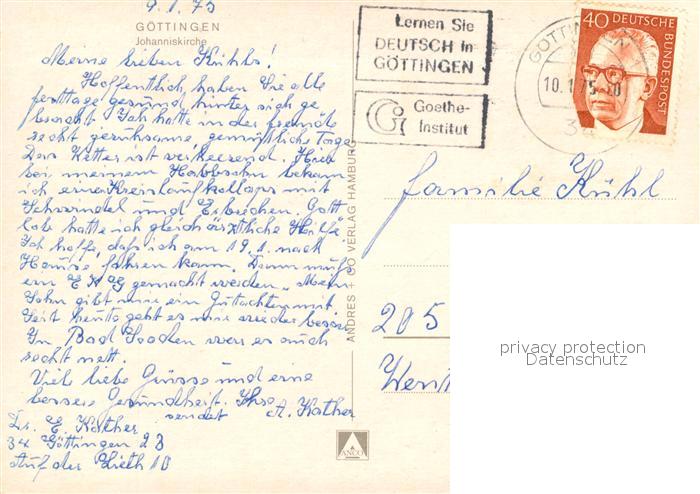 9.1.75
GÖTTINGEN
Johanniskirche
Meine lieben Kühls!
Hoffentlich haben Sie alle
Festtage gesund hinter sich ge
bracht. Ich hatte in der
recht geruhsame, gemütliche Tage.
Das Wetter ist verheerend. Hier
bei meinem bekam
ich einen Kreislaufkollaps mit
Schwindel und Erbrechen. Gott
lob hatte ich gleich ärztliche Hilfe.
Ich hoffe, daß ich am 19.1. nach
Hause fahren kann. Dann muß
ein E K G gemacht werden. Mein
Sohn gibt mir ein Gutachten mit.
Seit heute geht es mir wieder besser
In Bad Sooden war es auch
recht nett.
Viele liebe Grüsse und eine
bessere Gesundheit. Ihre
sendet A. Kather
Dr. E. Kather
34 Göttingen 23
Auf der Lieth 10
ANDRES + CO VERLAG HAMBURG
ANCO
Lernen Sie
DEUTSCH in
GÖTTINGEN
Goethe-
Institut
GÖTTINGEN 1
10.1.75
34
40 DEUTSCHE
BUNDESPOST
Familie Kühl
205
Went
privacy protection
Datenschutz